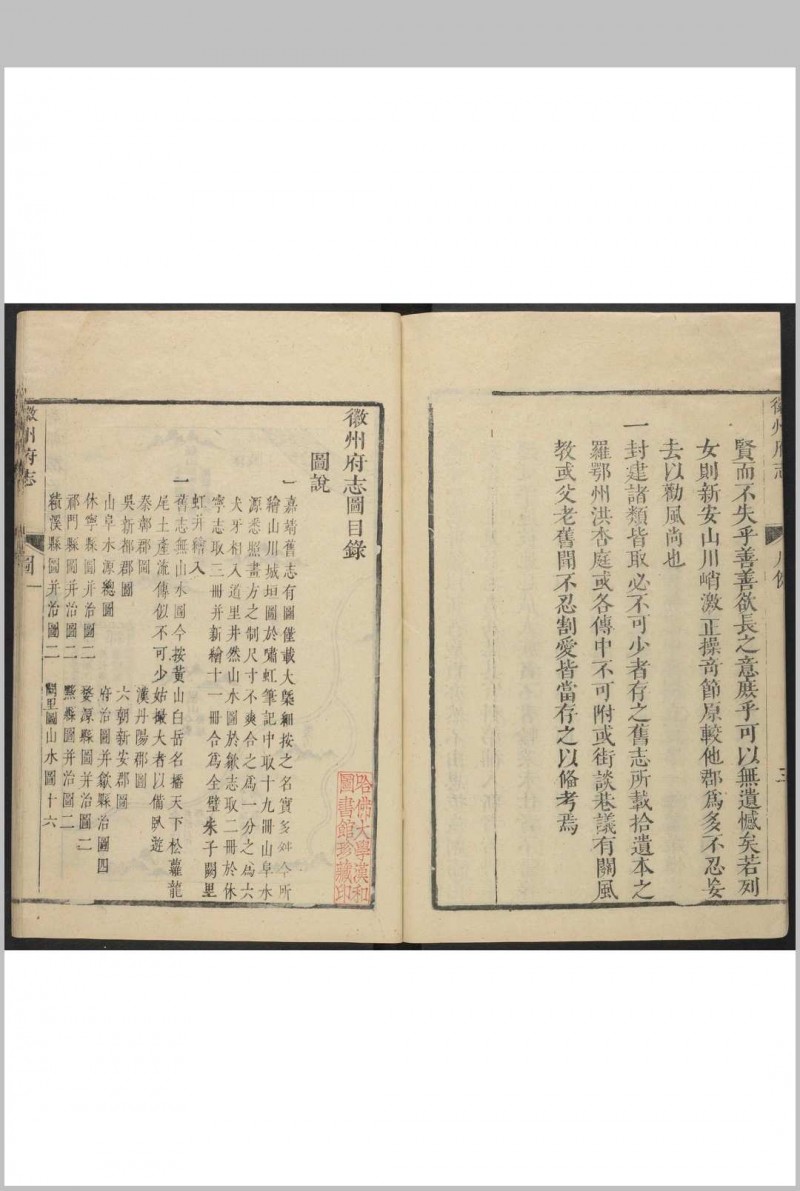 徽州府志
凡例
三
賢而不失乎善善欲長之意庶乎可以無遺憾矣若列
女則新安山川峭激正操奇節原較他郡爲多不忍妄
去以勸風尚也
一封建諸類皆取必不可少者存之舊志所載拾遺本之
羅鄂州洪杏庭或各傳中不可附或街談巷議有關風
教或父老舊聞不忍割愛皆當存之以俻考焉
徽州府志圖目錄
圖說
一嘉靖舊志有圖僅載大槩細按之名實多舛今所
繪山川城垣圖於嘯虹筆記中取十九冊山阜水
源悉照畫方之制尺寸不爽合之爲一分之爲六
犬牙相入道里井然山水圖於歙志取二冊於休
寧志取三冊并新繪十一冊合爲全璧朱子闕里
虹井繪入
一舊志無山水圖今按黃山白岳名播天下松蘿龍
尾土產流傳似不可少姑撮大者以備臥遊
秦鄣郡圖
漢丹陽郡圖
吳新都郡圖
六朝新安郡圖
山阜水源總圖
府治圖并歙縣治圖四
休寧縣圖并治圖二
婺源縣圖并治圖二
祁門縣圖并治圖二
黟縣圖并治圖二
績溪縣圖并治圖二
闕里圖山水圖十六
徽州府志
圖
一
哈佛大學漢和
圖書館珍藏印